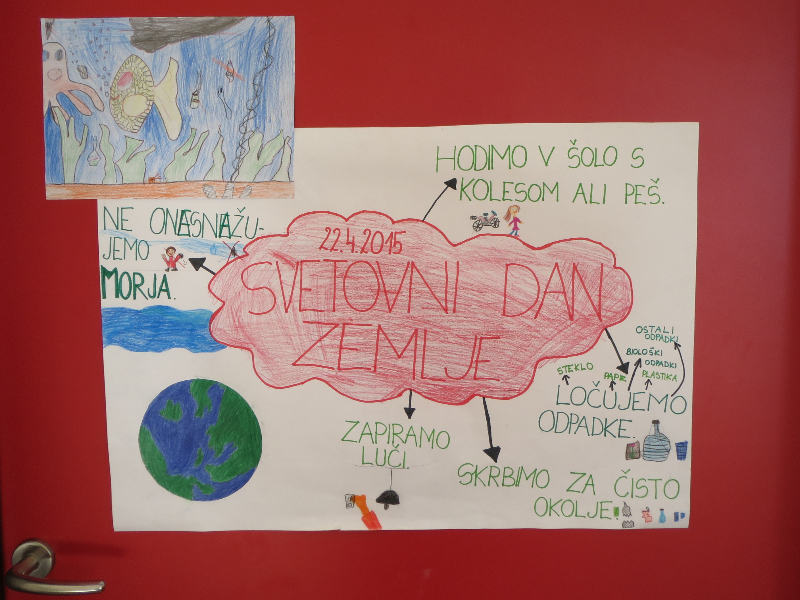 HODIMO V ŠOLO S
KOLESOM ALI PEŠ.
NE ONASNAŽU-
JEMO
MORJA.
22.4.2015
SVETOVNI DAN
ZEMLJE
OSTALI
ODPADKI
BIOLOŠKI
ODPADKI
STEKLO
PAPIR
PLASTIKA
LOČUJEMO
ODPADKE.
ZAPIRAMO
LUČI.
SKRBIMO ZA ČISTO
OKOLJE!